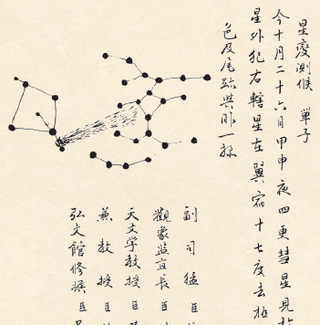 星變測候 單子
今十月二十六日甲申夜四更彗星見於
星外犯右轄星在翼宿十七度去極
色及尾跡與昨一樣
副司猛臣
觀象監直長臣
天文學教授臣
兼教授臣
弘文館修撰臣